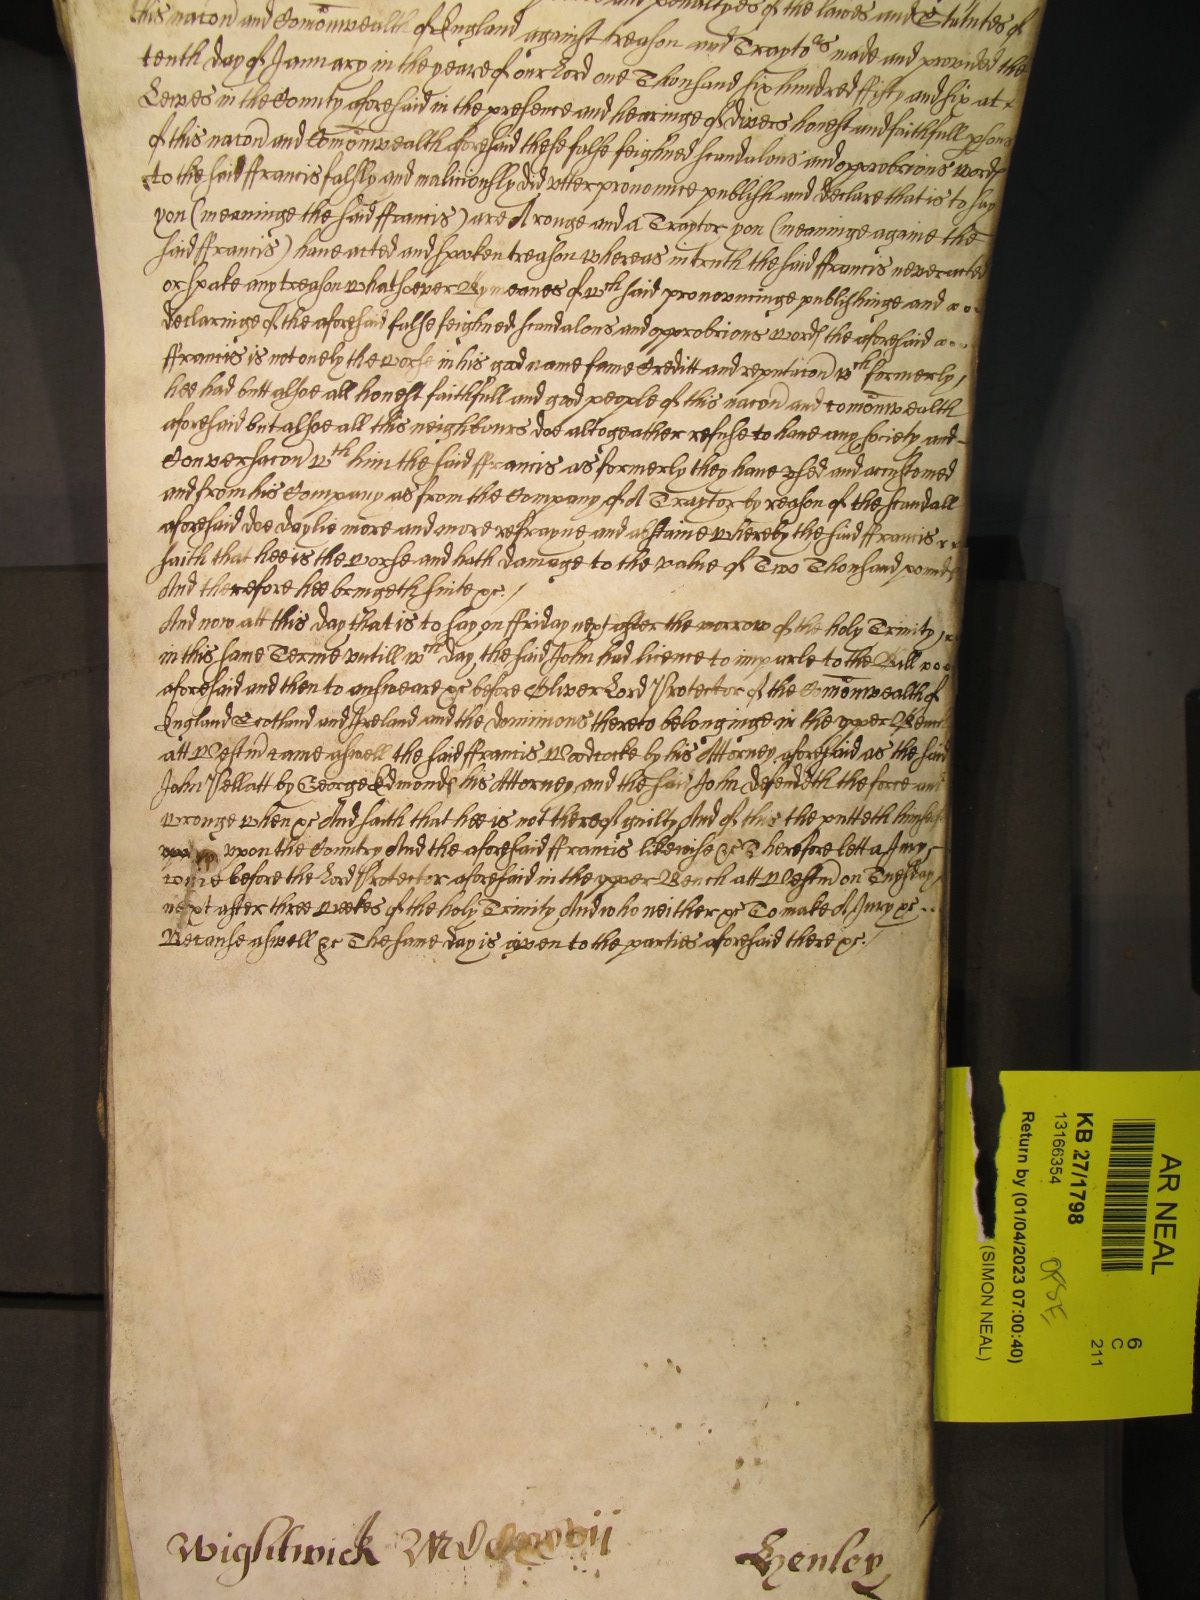 and penaltyes of the lawes and Statutes of
this nacon and Comonwealth of England against treason and Traytors made and provided the
tenth day of January in the yeare of our Lord one Thousand six hundred fifty and six at
Lewes in the County aforesaid in the presence and hearinge of divers honest and faithfull psons
of this nacon and Comonwealth aforesaid these false feighned scandalous and opprobrious words
to the said ffrancis falsly and maliciously did utter pronounce publish and declare that is to say
you (meaninge the said ffrancis) are A rouge and A Traytor you (meaninge againe the
said ffrancis) have acted and spoken treason whereas in truth the said ffrancis never acted
or spake any treason whatsoever By meanes of wth said pronouncinge publishinge and
declaringe of the aforesaid false feighned scandalous and opprobrious words the aforesaid
ffrancis is not onely the worse in his good name fame Creditt and reputacon wch formerly
hee had butt alsoe all honest faithfull and good people of this nacon and comonwealth
aforesaid but alsoe all this neighbours doe altogeather refuse to have any society and
Conversacon wth him the said ffrancis as formerly they have used and accustomed
and from his Company as from the Company of A Traytor by reason of the scandall
aforesaid doe daylie more and more refrayne and abstaine whereby the said ffrancis
saith that hee is the worse and hath damage to the value of Two Thousand pounds
And therefore hee bringeth suite &c.
And now att this day that is to say on ffriday next after the morrow of the holy Trinity
in this same Terme untill wch day the said John had licence to imparle to the Bill
aforesaid and then to answeare &c before Oliver Lord Protector of the Comonwealth of
England Scotland and Ireland and the dominions thereto belonginge in the upper Bench
att Westm came aswell the said ffrancis Woodcocke by his Attorney aforesaid as the said
John Pellatt by George Edmonds his Attorney and the said John defendeth the force and
wronge when &c And saith that hee is not thereof guilty And of this he putteth himself
upon the Country And the aforesaid ffrancis likewise &c Therefore lett a Jury
come before the Lord Protector aforesaid in the upper Bench att Westm on Tuesday
next after three weekes of the holy Trinity And who neither &c To make A Jury &c
Because aswell &c The same day is given to the parties aforesaid there &c.
Wightwick
Henley
AR NEAL
6
C
211
KB 27/1798
13166354
Return by (01/04/2023 07:00:40)
(SIMON NEAL)